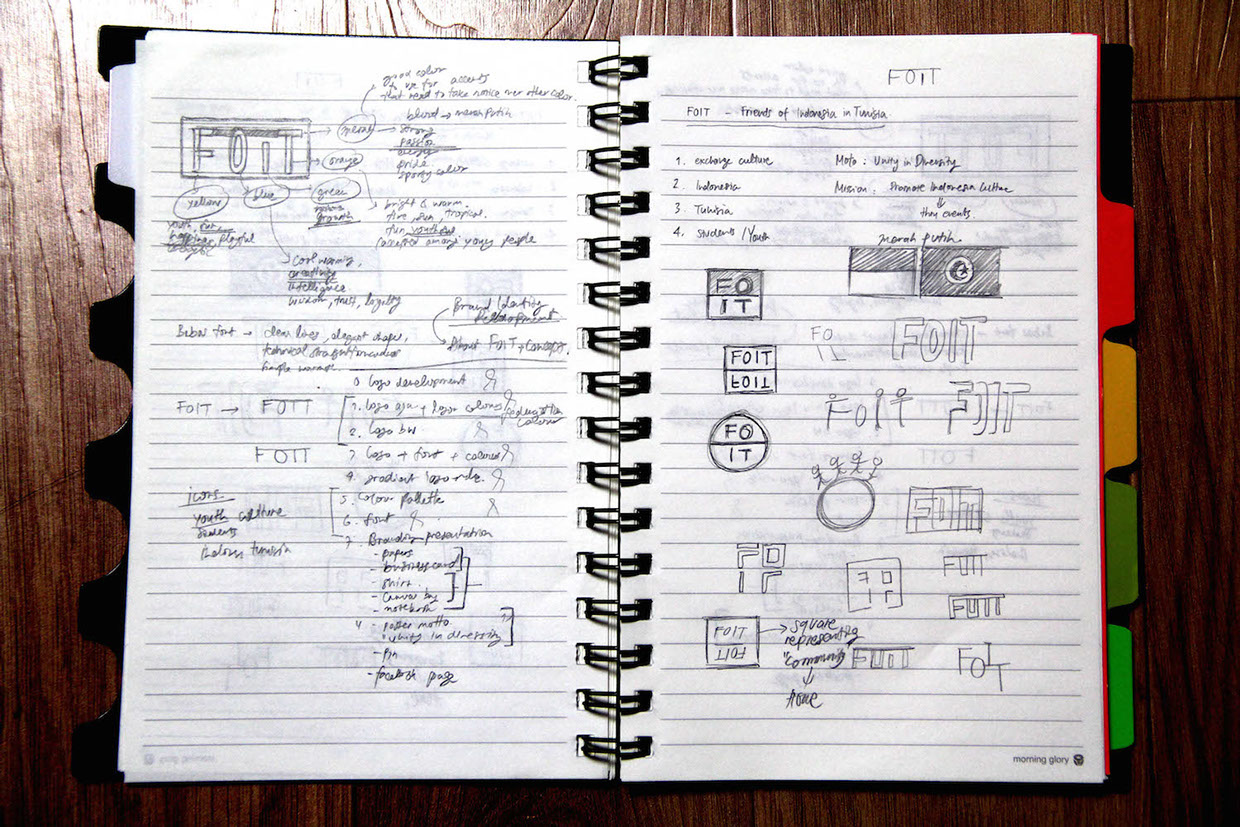 good color
to use for accents
that need to take notice over other color.
blurud → merah putih
FOIT
merah → strong
passion
energy
pride
sporty color
orange
yellow
blue
green
growth
bright & warm.
fire, sun, tropical.
fun, youthful
accepted among young people
youth, fun,
playful
cool warming,
intelligence
wisdom, trust, loyalty
Brand Identity
Development
About FOIT + concept.
Bebas font → clean lines, elegant shapes,
technical straightforwardness
simple warmth.
0 logo development
FOIT → FOIT
1. logo + logo colors
colour
2. logo bw
FOIT
3 logo + font + colored
4. gradient logo
5. colour pallette
6. font
7. Branding presentation
icons.
youth culture
students
tunisia
- papers
- business card
- shirt
- canvas bag
- notebook
- poster motto
"unity in diversity"
- pin
- facebook page
FOIT
FOIT - Friends of Indonesia in Tunisia
1. exchange culture
2. Indonesia
3. Tunisia
4. students / Youth
Moto : Unity in Diversity
Mission : Promote Indonesia Culture
thru events
merah putih
FO
IT
FO
IT
FOIT
FOIT
FOIT
FOIT
FOIT
FO
IT
FOIT
FO
IT
FO
IT
FOIT
FOIT
FOIT
FOIT
→ square
representing
"community"
home
FOIT
FOIT
morning glory